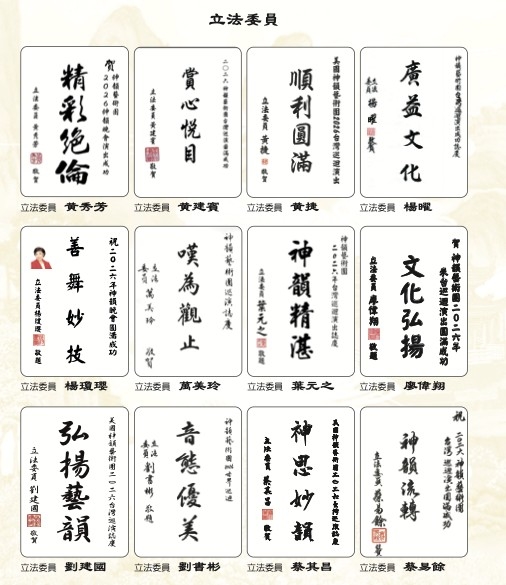 立法委員
賀
神韻藝術團
2026神韻晚會演出成功
精彩絕倫
立法委員 黃秀芳 敬賀
立法委員 黃秀芳
二〇二六神韻藝術團台灣巡演圓滿成功
賞心悅目
立法委員 黃建賓 敬賀
立法委員 黃建賓
美國神韻藝術團2026台灣巡迴演出
順利圓滿
立法委員 黃捷 敬賀
立法委員 黃捷
廣益文化
立法委員 楊曜 敬賀
立法委員 楊曜
祝二〇二六年神韻晚會圓滿成功
善舞妙技
立法委員楊瓊瓔 敬題
立法委員 楊瓊瓔
神韻藝術團巡演誌慶
嘆為觀止
立法委員 萬美玲 敬賀
立法委員 萬美玲
神韻藝術團
二〇二六年台灣巡迴演出誌慶
神韻精湛
立法委員 葉元之 敬題
立法委員 葉元之
賀 神韻藝術團二〇二六年
來台巡迴演出圓滿成功
文化弘揚
立法委員 廖偉翔 敬題
立法委員 廖偉翔
美國神韻藝術團二〇二六台灣巡演誌慶
弘揚藝韻
立法委員 劉建國 敬賀
立法委員 劉建國
神韻藝術團2026世界巡迴
音態優美
立法委員 劉書彬 敬題
立法委員 劉書彬
美國神韻藝術團二〇二六台灣巡迴演出誌慶
神思妙韻
立法委員 蔡其昌 敬賀
立法委員 蔡其昌
祝
二〇二六神韻藝術團
台灣巡迴演出圓滿成功
神韻流轉
立法委員 蔡易餘 賀
立法委員 蔡易餘